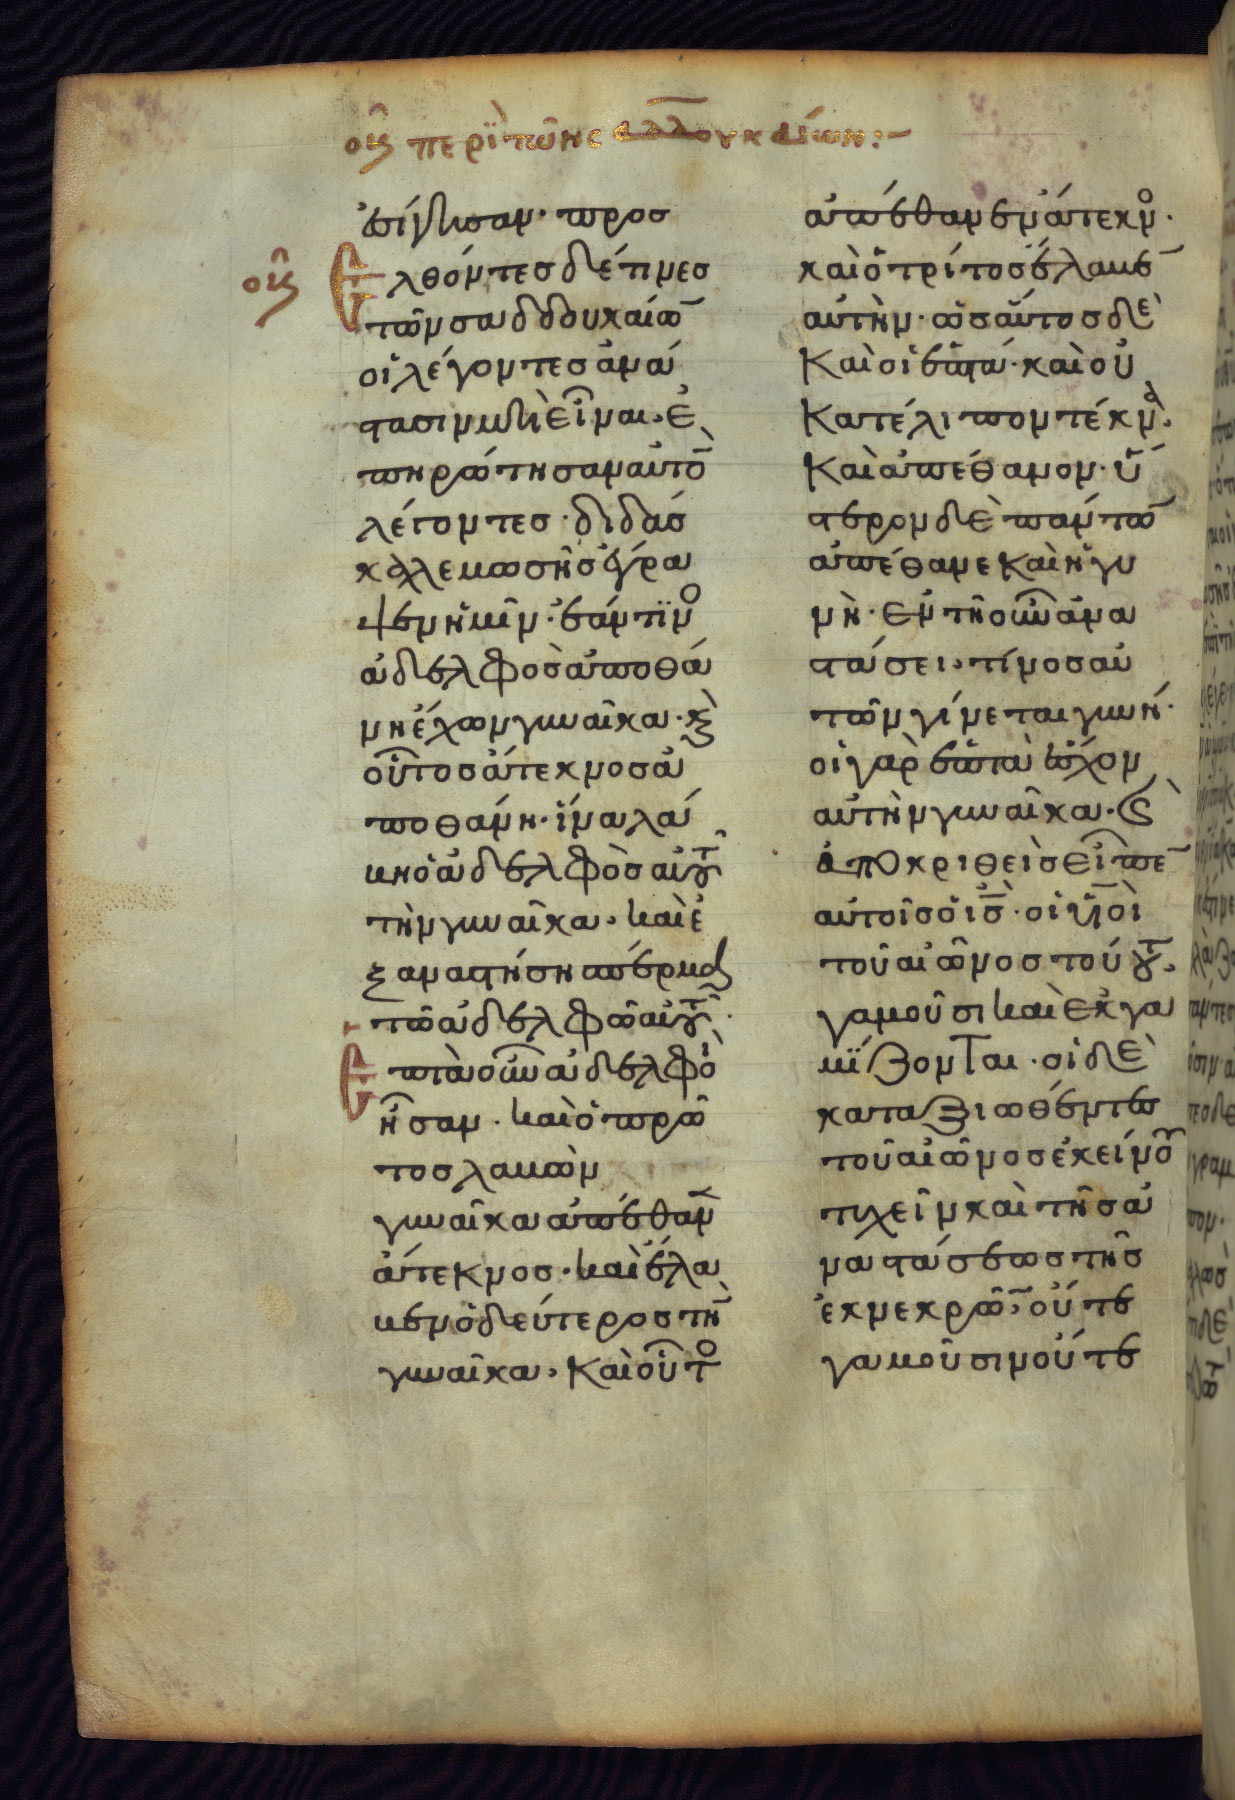 ος περὶ τῶν σαδδουκαίων:-
ἐσίγησαν· προσ
ος
ελθόντες δέ τινες
τῶν σαδδουκαίω̅
οἱ λέγοντες ἀνά
στασιν μὴ εἶναι. ἐ
πηρώτησαν αὐτὸ̅
λέγοντες· διδάσ
καλε μωσῆς ἔγρα
ψεν ἡμῖν· ἐάν τινο
ἀδελφὸς ἀποθά
νη ἔχων γυναῖκα· κ̀
οὗτος ἄτεκνος ἀ
ποθάνη· ἵνα λά
βη ὁ ἀδελφὸς αὐτ
τὴν γυναῖκα. καὶ ἐ
ξαναστήση σπέρμα
τῶ ἀδελφῶ αὐτ·
ἑπτὰ οὖν ἀδελφοὶ
ἦσαν. καὶ ὁ πρῶ
τος λαβὼν
γυναῖκα ἀπέθαν
ἄτεκνος· καὶ ἔλα
βεν ὁ δεύτερος τὴ̅
γυναῖκα. καὶ οὗτο
ἀπέθανεν ἄτεκνο·
καὶ ὁ τρίτος ἔλαβε̅
αὐτήν· ὡσαύτος δὲ
καὶ οἱ ἑπτά· καὶ οὐ
κατέλιπον τέκνα.
καὶ ἀπέθανον· ὕ
στερον δὲ πάντω̅
ἀπέθανε καὶ ἡ γυ
νή· ἐν τῆ οὖν ἀνα
στάσει. τίνος αὐ
τῶν γίνεται γυνή·
οἱ γὰρ ἑπτὰ ἔσχον
αὐτὴν γυναῖκα. ϛ̀
ἀποκριθεὶς εἶπε̅
αὐτοῖς ὁ ι̅ς̅· οἱ υἱοὶ
τοῦ αἰῶνος τούτ.
γαμοῦσι καὶ ἐκγα
μίζονται· οἱ δὲ
καταξιωθέντες
τοῦ αἰῶνος ἐκείνο
τυχεῖν καὶ τῆς ἀ
ναστάσεως τῆς
ἐκ νεκρῶ̅, οὔτε
γαμοῦσιν οὔτε